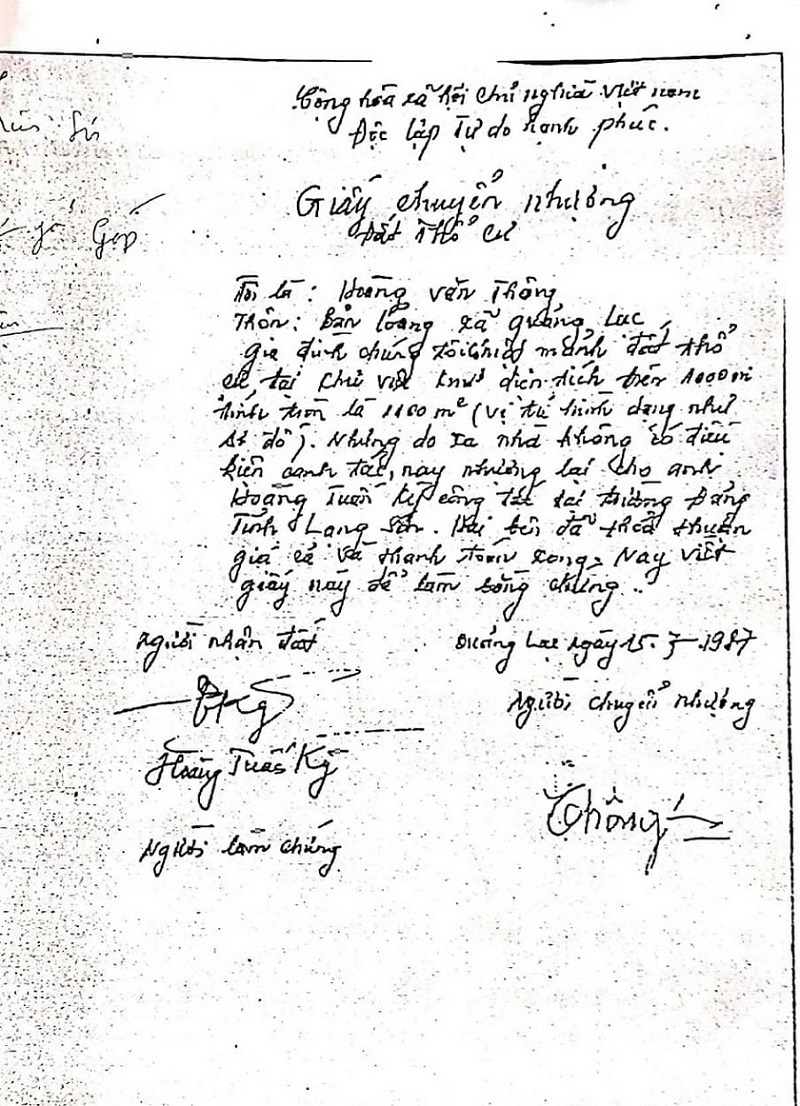 Cộng hòa xã hội chủ nghĩa Việt nam
Độc lập Tự do hạnh phúc.
Giấy chuyển nhượng
Đất Thổ cư
Tôi là: Hoàng văn Thông
Thôn: Bản Loỏng xã quảng Lạc
gia đình chúng tôi có mảnh đất thổ
cư, tại khu vực diện tích trên 1000 m
tính tròn là 1100 m² (vị trí hình dạng như
sơ đồ). Nhưng do xa nhà không có điều
kiện canh tác, nay nhượng lại cho anh
Hoàng Tuấn Kỳ công tác tại trường Đảng
Tỉnh Lạng Sơn. Hai bên đã thoả thuận
giá cả và thanh toán xong, Nay viết
giấy này để làm bằng chứng..
Người nhận đất
Quảng Lạc ngày 15. 7 - 1987
Người chuyển nhượng
Hoàng Tuấn Kỳ
Thông
Người làm chứng